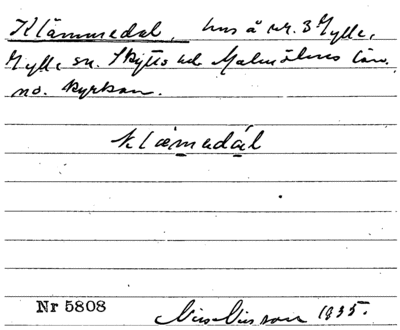 Klämmedal, hus å nr. 3 Hylle,
Hylle sn. Skytts hd Malmöhus län.
no. kyrkan.
klæmedál
Nr 5808
Nils Nilsson 1935.